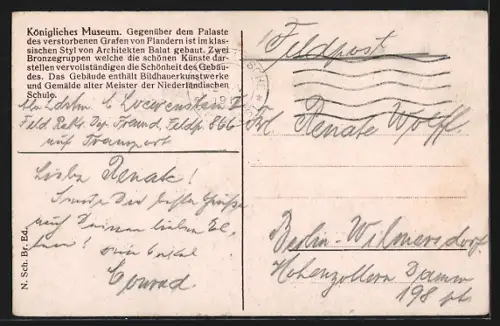 Königliches Museum. Gegenüber dem Palaste
des verstorbenen Grafen von Flandern ist im klas-
sischen Styl von Architekten Balat gebaut. Zwei
Bronzegruppen welche die schönen Künste dar-
stellen vervollständigen die Schönheit des Gebäu-
des. Das Gebäude enthält Bildhauerkunstwerke
und Gemälde alter Meister der Niederländischen
Schule.
Abs. Ldstm. C. Loewenstein
Feld Rekr. Dep. Feldp. 866
auf Transport
Liebe Renate!
Sende Dir beste Grüße
auf Deinen lieben El-
tern!
Dein Onkel
Conrad
N. Sch. Br. Ed.
Feldpost
Frl.
Renate Wolff
Berlin-Wilmersdorf
Hohenzollern Damm
198 pt